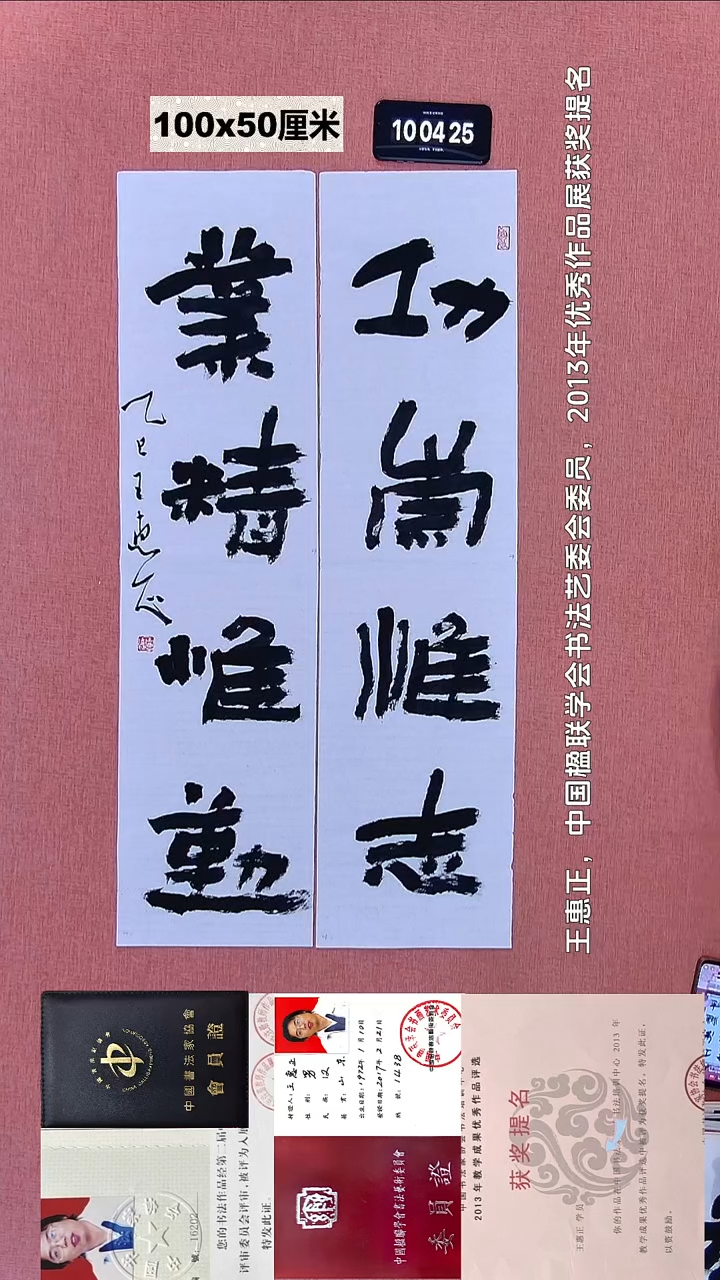 100x50厘米
10 04 25
功崇惟志
業精惟勤
乙巳王惠正
王惠正，中国楹联学会书法艺委会委员，2013年优秀作品展获奖提名
中國書法家協會
會員證
王惠正
男
汉
山东
1972年1月10日
2017年2月21日
1438
號 16202
您的书法作品经第二届
评审委员会评审，被评为入展
特发此证。
中國楹聯學會書法藝術委員會
委員證
2013年教学成果优秀作品评选
获奖提名
王惠正 学员
教学成果优秀作品评选中被评为获奖提名，特发此证，
以资鼓励。